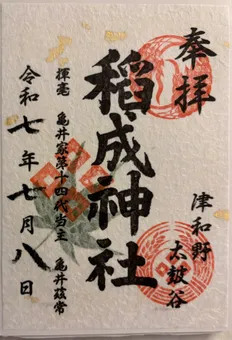 奉拝
津和野
太皷谷
稲成神社
揮毫 亀井家第十四代当主 亀井茲常
令和七年七月八日